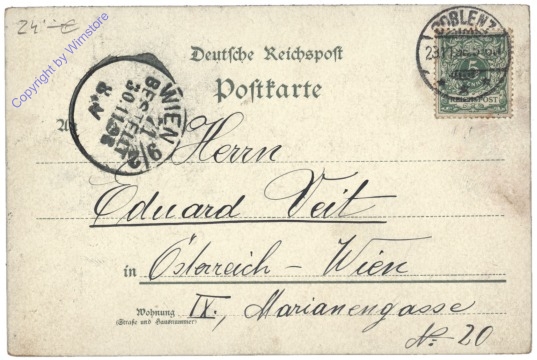 24.-€
Copyright by Wimstore
Deutsche Reichspost
Postkarte
COBLENZ
REICHSPOST
5
WIEN 9/
BESTELLT
30.11.98
8.V
An
Herrn
Eduard Veit
in Österreich - Wien
Wohnung IX., Marianengasse
(Straße und Hausnummer)
No. 20